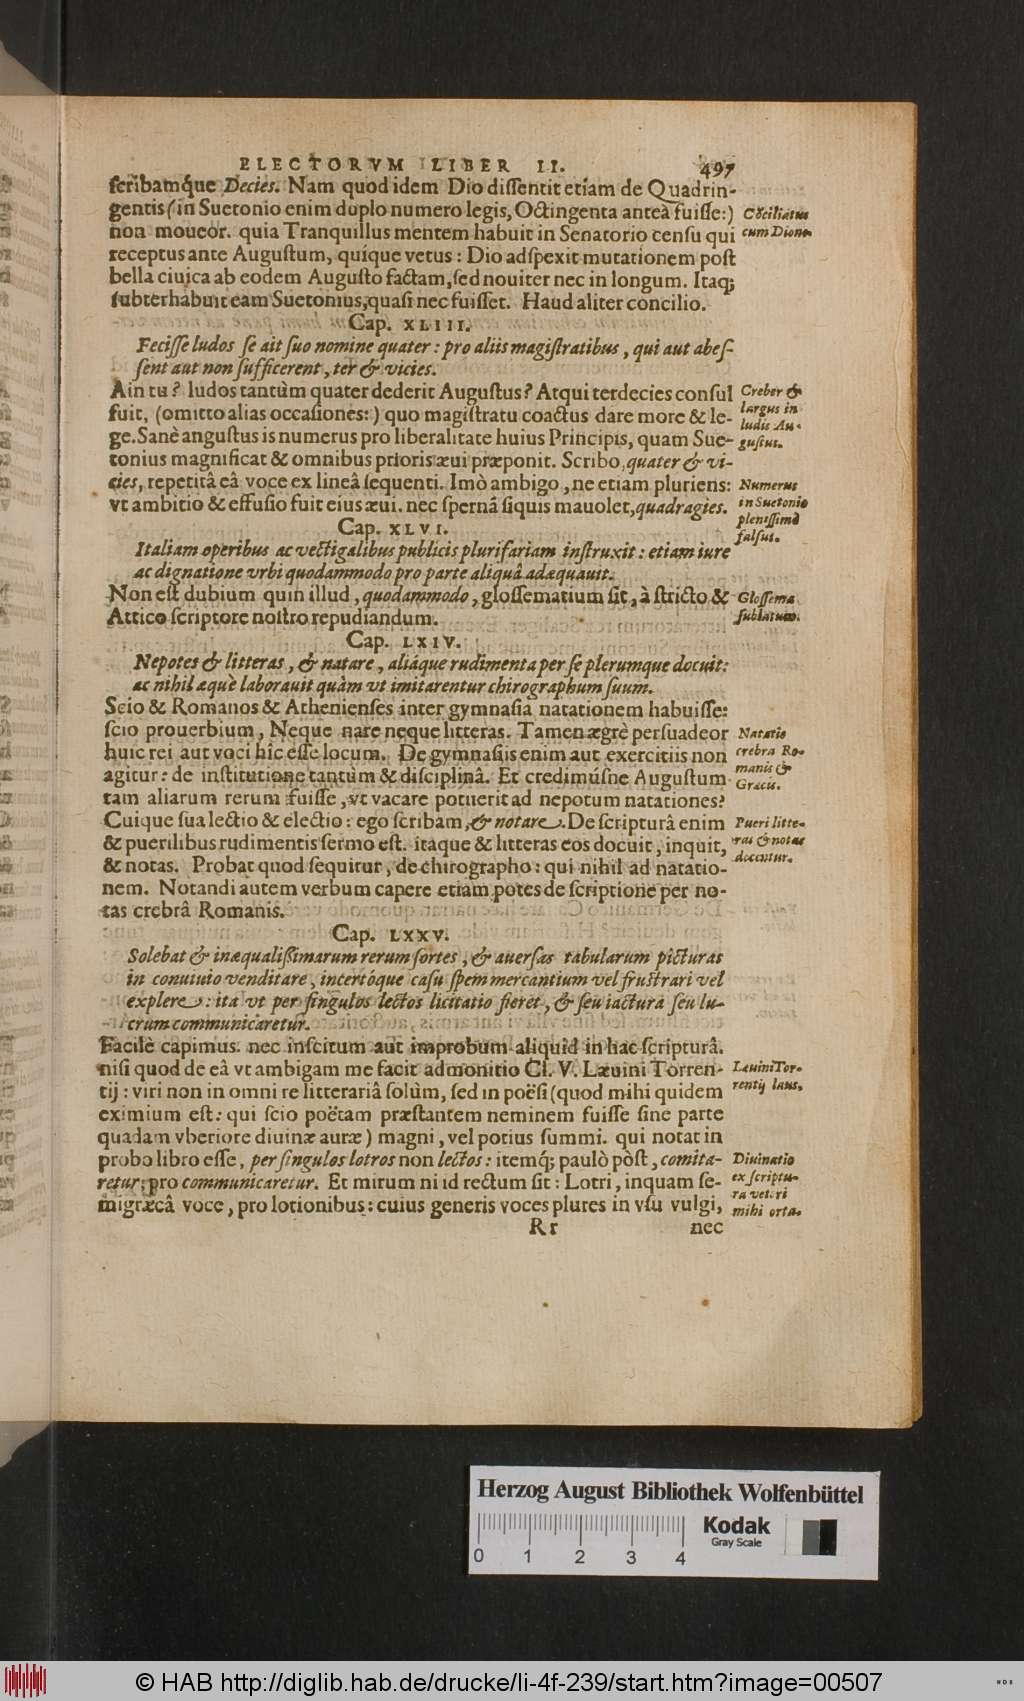 ELECTORVM LIBER II. 497
ſcribamq́ue Decies. Nam quod idem Dio diſſentit etiam de Quadrin-
gentis (in Suetonio enim duplo numero legis, Octingenta anteà fuiſſe:)
non moueor. quia Tranquillus mentem habuit in Senatorio cenſu qui
receptus ante Auguſtum, quíque vetus: Dio adſpexit mutationem poſt
bella ciuica ab eodem Auguſto factam, ſed nouiter nec in longum. Itaq;
ſubterhabuit eam Suetonius, quaſi nec fuiſſet. Haud aliter concilio.
Cõciliatus
cum Dione.
Cap. XLIII.
Feciſſe ludos ſe ait ſuo nomine quater: pro aliis magiſtratibus, qui aut abeſ-
ſent aut non ſufficerent, ter & vicies.
Ain tu? ludos tantùm quater dederit Auguſtus? Atqui terdecies conſul
fuit, (omitto alias occaſiones:) quo magiſtratu coactus dare more & le-
ge. Sanè anguſtus is numerus pro liberalitate huius Principis, quam Sue-
tonius magnificat & omnibus prioris æui præponit. Scribo, quater & vi-
cies, repetitâ eâ voce ex lineâ ſequenti. Imò ambigo, ne etiam pluriens:
vt ambitio & effuſio fuit eius æui. nec ſpernā ſiquis mauolet, quadragies.
Creber &
largus in
ludis Au-
guſtus.
Numerus
in Suetonio
pleniſſimè
falſus.
Cap. XLVI.
Italiam operibus ac vectigalibus publicis plurifariam inſtruxit: etiam iure
ac dignatione vrbi quodammodo pro parte aliquâ adæquauit.
Non eſt dubium quin illud, quodammodo, gloſſematium ſit, à ſtricto &
Attico ſcriptore noſtro repudiandum.
Gloſſema
ſublatum.
Cap. LXIV.
Nepotes & litteras, & natare, aliáque rudimenta per ſe plerumque docuit:
ac nihil æquè laborauit quàm vt imitarentur chirographum ſuum.
Scio & Romanos & Athenienſes inter gymnaſia natationem habuiſſe:
ſcio prouerbium, Neque nare neque litteras. Tamen ægrè perſuadeor
huic rei aut voci hîc eſſe locum. De gymnaſiis enim aut exercitiis non
agitur: de inſtitutione tantùm & diſciplinâ. Et credimúſne Auguſtum
tam aliarum rerum fuiſſe, vt vacare potuerit ad nepotum natationes?
Cuique ſua lectio & electio: ego ſcribam, & notare. De ſcripturâ enim
& puerilibus rudimentis ſermo eſt. itaque & litteras eos docuit, inquit,
& notas. Probat quod ſequitur, de chirographo: qui nihil ad natatio-
nem. Notandi autem verbum capere etiam potes de ſcriptione per no-
tas crebrâ Romanis.
Natatio
crebra Ro-
manis &
Græcis.
Pueri litte-
ras & notas
docentur.
Cap. LXXV.
Solebat & inæqualiſſimarum rerum ſortes, & auerſas tabularum picturas
in conuiuio venditare, incertóque caſu ſpem mercantium vel fruſtrari vel
explere: ita vt per ſingulos lectos licitatio fieret, & ſeu iactura ſeu lu-
crum communicaretur.
Facilè capimus. nec inſcitum aut improbum aliquid in hac ſcripturâ.
niſi quod de eâ vt ambigam me facit admonitio Cl. V. Læuini Torren-
tij: viri non in omni re litterariâ ſolùm, ſed in poëſi (quod mihi quidem
eximium eſt: qui ſcio poëtam præſtantem neminem fuiſſe ſine parte
quadam vberiore diuinæ auræ) magni, vel potius ſummi. qui notat in
probo libro eſſe, per ſingulos lotros non lectos: itemq́; paulò pòſt, comita-
retur, pro communicaretur. Et mirum ni id rectum ſit: Lotri, inquam ſe-
migræcâ voce, pro lotionibus: cuius generis voces plures in vſu vulgi,
Læuini Tor-
rentij laus,
Diuinatio
ex ſcriptu-
ra veteri
mihi orta.
Rr nec
Herzog August Bibliothek Wolfenbüttel
Kodak
Gray Scale
0 1 2 3 4
© HAB http://diglib.hab.de/drucke/li-4f-239/start.htm?image=00507